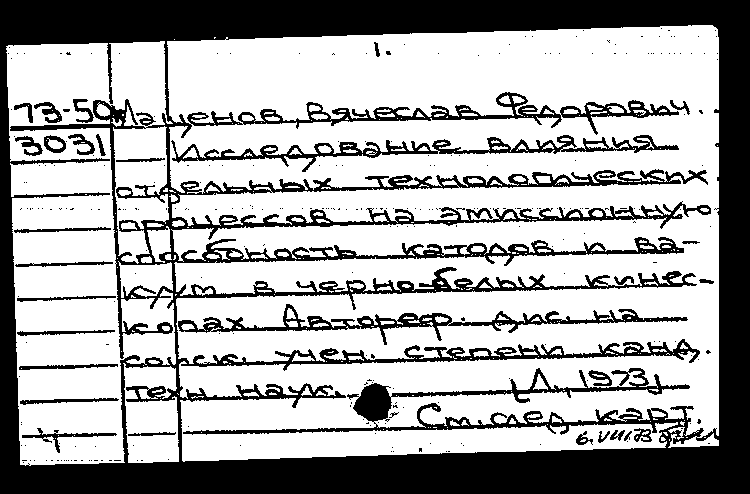 1.
73-50 Мащенов, Вячеслав Федорович.
3031 Исследование влияния
отдельных технологических
процессов на эмиссионную
способность катодов и ва-
куум в черно-белых кинес-
копах. Автореф. дис. на
соиск. учен. степени канд.
техн. наук. [Л., 1973]
См. след. карт.
4 6.VIII.73